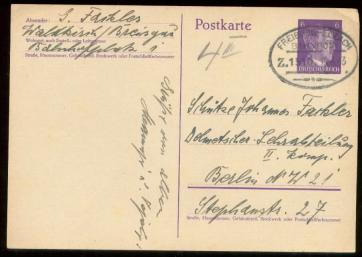 Absender: S. Fackler
Waldkirch / Breisgau
Bahnhofplatz 1
Wohnort, auch Zustell- oder Leitpostamt
Straße, Hausnummer, Gebäudeteil, Stockwerk oder Postschließfachnummer
Postkarte
6
DEUTSCHES REICH
Z.1
Schütze Johannes Fackler
Dolmetscher-Lehrabteilung
II. Komp.
Berlin NW 21
Stephanstr. 27
Straße, Hausnummer, Gebäudeteil, Stockwerk oder Postschließfachnummer
Grüße von allen